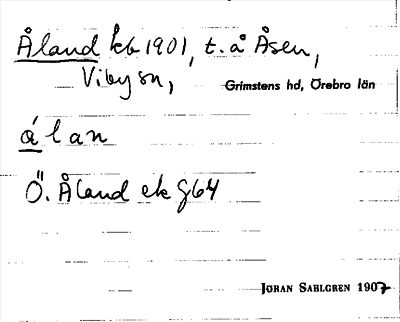 Åland kb 1901, t. å Åsen,
Viby sn,
Grimstens hd, Örebro län
álan
Ö. Åland ek g64
JÖRAN SAHLGREN 1907